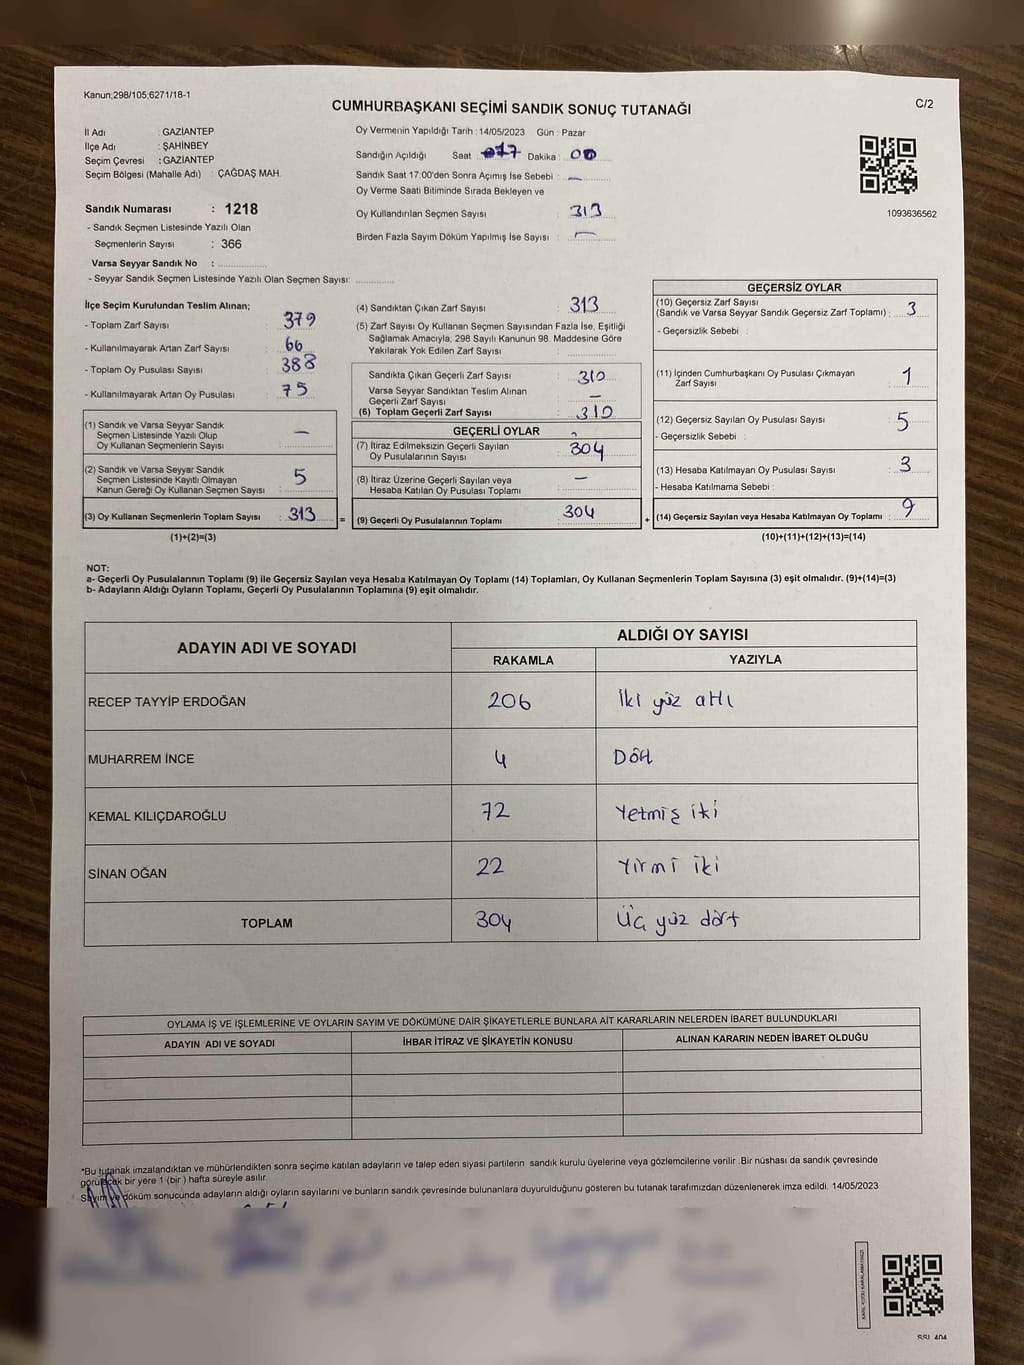 Kanun;298/105,6271/18-1
CUMHURBAŞKANI SEÇİMİ SANDIK SONUÇ TUTANAĞI
C/2
İl Adı : GAZİANTEP
İlçe Adı : ŞAHİNBEY
Seçim Çevresi : GAZİANTEP
Seçim Bölgesi (Mahalle Adı) : ÇAĞDAŞ MAH.
Sandık Numarası : 1218
- Sandık Seçmen Listesinde Yazılı Olan
Seçmenlerin Sayısı : 366
Varsa Seyyar Sandık No :
- Seyyar Sandık Seçmen Listesinde Yazılı Olan Seçmen Sayısı:
Oy Vermenin Yapıldığı Tarih : 14/05/2023 Gün : Pazar
Sandığın Açıldığı Saat 17 Dakika : 00
Sandık Saat 17:00'den Sonra Açımış İse Sebebi : —
Oy Verme Saati Bitiminde Sırada Bekleyen ve
Oy Kullandırılan Seçmen Sayısı : 313
Birden Fazla Sayım Döküm Yapılmış İse Sayısı : —
1093636562
İlçe Seçim Kurulundan Teslim Alınan;
- Toplam Zarf Sayısı : 379
- Kullanılmayarak Artan Zarf Sayısı : 66
- Toplam Oy Pusulası Sayısı : 388
- Kullanılmayarak Artan Oy Pusulası : 75
(1) Sandık ve Varsa Seyyar Sandık
Seçmen Listesinde Yazılı Olup
Oy Kullanan Seçmenlerin Sayısı : —
(2) Sandık ve Varsa Seyyar Sandık
Seçmen Listesinde Kayıtlı Olmayan
Kanun Gereği Oy Kullanan Seçmen Sayısı : 5
(3) Oy Kullanan Seçmenlerin Toplam Sayısı : 313 =
(1)+(2)=(3)
(4) Sandıktan Çıkan Zarf Sayısı : 313
(5) Zarf Sayısı Oy Kullanan Seçmen Sayısından Fazla İse, Eşitliği
Sağlamak Amacıyla; 298 Sayılı Kanunun 98. Maddesine Göre
Yakılarak Yok Edilen Zarf Sayısı :
Sandıkta Çıkan Geçerli Zarf Sayısı : 310
Varsa Seyyar Sandıktan Teslim Alınan
Geçerli Zarf Sayısı : —
(6) Toplam Geçerli Zarf Sayısı : 310
GEÇERLİ OYLAR
(7) İtiraz Edilmeksizin Geçerli Sayılan
Oy Pusulalarının Sayısı : 304
(8) İtiraz Üzerine Geçerli Sayılan veya
Hesaba Katılan Oy Pusulası Toplamı : —
(9) Geçerli Oy Pusulalarının Toplamı : 304 +
GEÇERSİZ OYLAR
(10) Geçersiz Zarf Sayısı
(Sandık ve Varsa Seyyar Sandık Geçersiz Zarf Toplamı) : 3
- Geçersizlik Sebebi :
(11) İçinden Cumhurbaşkanı Oy Pusulası Çıkmayan
Zarf Sayısı : 1
(12) Geçersiz Sayılan Oy Pusulası Sayısı : 5
- Geçersizlik Sebebi :
(13) Hesaba Katılmayan Oy Pusulası Sayısı : 3
- Hesaba Katılmama Sebebi :
(14) Geçersiz Sayılan veya Hesaba Katılmayan Oy Toplamı : 9
(10)+(11)+(12)+(13)=(14)
NOT:
a- Geçerli Oy Pusulalarının Toplamı (9) ile Geçersiz Sayılan veya Hesaba Katılmayan Oy Toplamı (14) Toplamları, Oy Kullanan Seçmenlerin Toplam Sayısına (3) eşit olmalıdır. (9)+(14)=(3)
b- Adayların Aldığı Oyların Toplamı, Geçerli Oy Pusulalarının Toplamına (9) eşit olmalıdır.
ADAYIN ADI VE SOYADI ALDIĞI OY SAYISI
RAKAMLA YAZIYLA
RECEP TAYYİP ERDOĞAN 206 İki yüz altı
MUHARREM İNCE 4 Dört
KEMAL KILIÇDAROĞLU 72 Yetmiş iki
SİNAN OĞAN 22 Yirmi iki
TOPLAM 304 Üç yüz dört
OYLAMA İŞ VE İŞLEMLERİNE VE OYLARIN SAYIM VE DÖKÜMÜNE DAİR ŞİKAYETLERLE BUNLARA AİT KARARLARIN NELERDEN İBARET BULUNDUKLARI
ADAYIN ADI VE SOYADI İHBAR İTİRAZ VE ŞİKAYETİN KONUSU ALINAN KARARIN NEDEN İBARET OLDUĞU
*Bu tutanak imzalandıktan ve mühürlendikten sonra seçime katılan adayların ve talep eden siyasi partilerin sandık kurulu üyelerine veya gözlemcilerine verilir. Bir nüshası da sandık çevresinde
görülecek bir yere 1 (bir) hafta süreyle asılır.
Sayım ve döküm sonucunda adayların aldığı oyların sayılarını ve bunların sandık çevresinde bulunanlara duyurulduğunu gösteren bu tutanak tarafımızdan düzenlenerek imza edildi. 14/05/2023